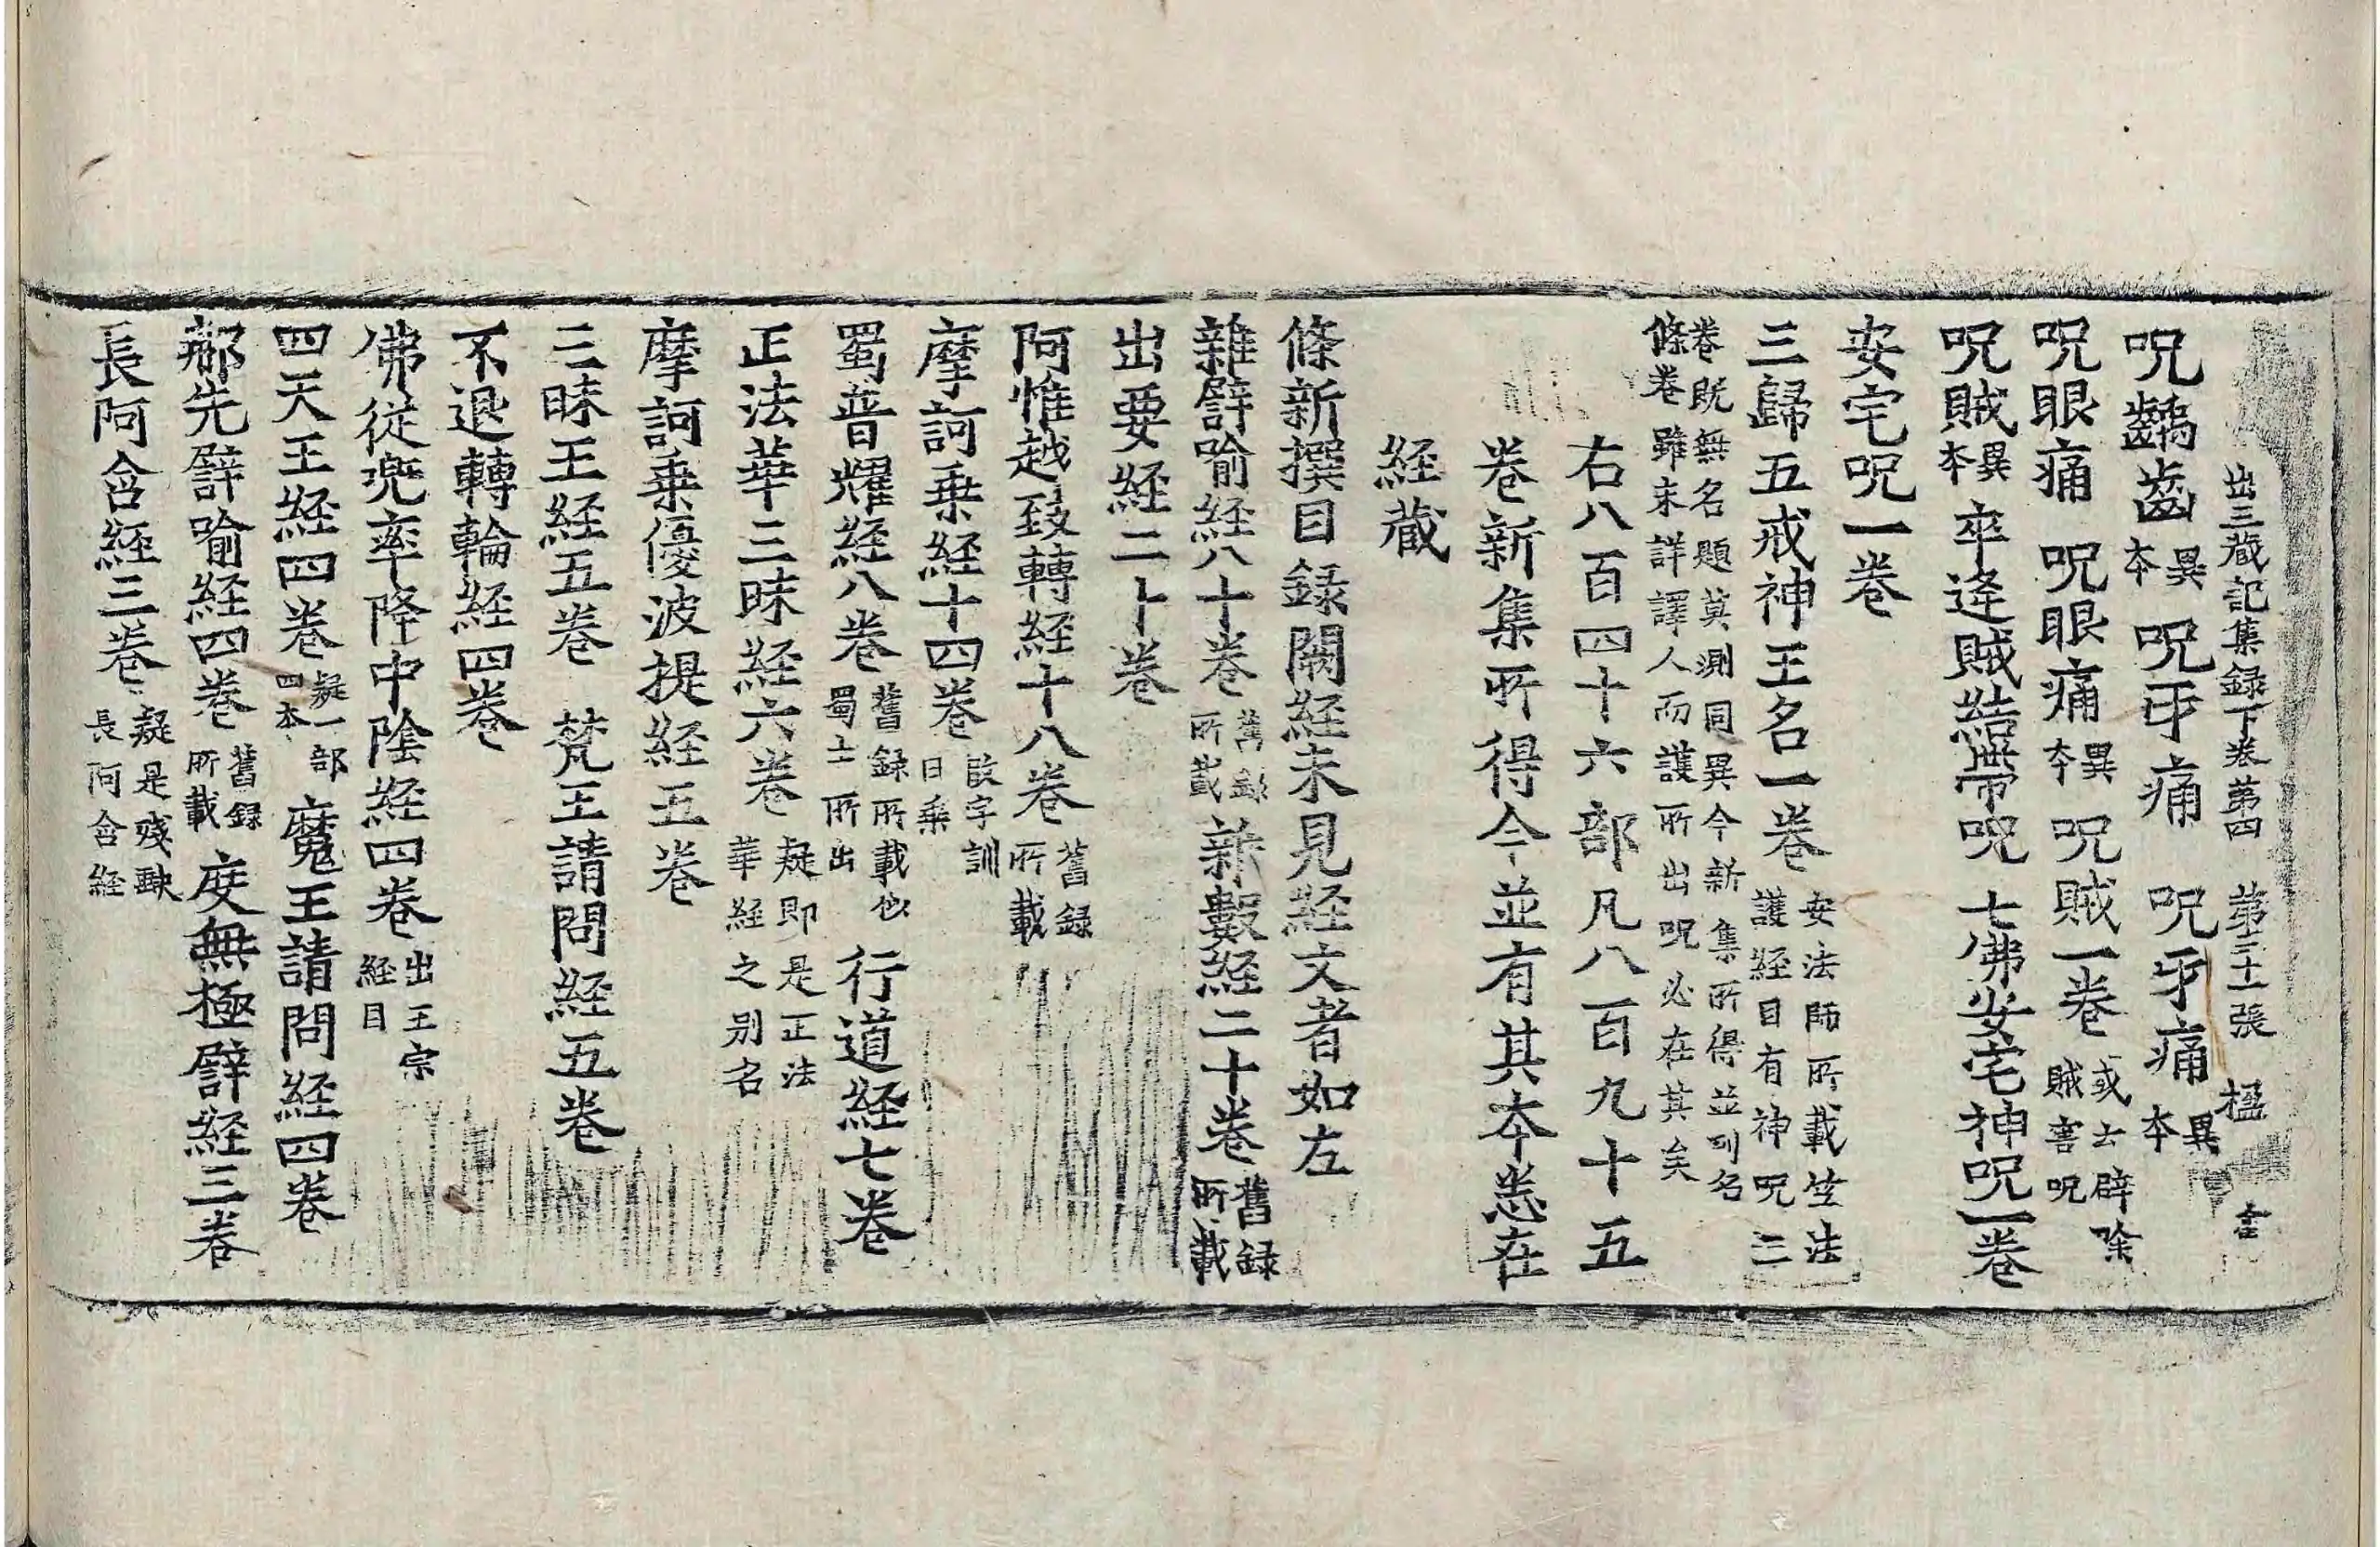 出三藏記集録下卷第四　第三十張　楹
呪齲齒異本　呪牙痛　呪牙痛異本
呪眼痛　呪眼痛異本　呪賊一卷或云辟除賊害呪
呪賊異本　卒逢賊結帶呪　七佛安宅神呪一卷
安宅呪一卷
三歸五戒神王名一卷安法師所載竺法護経目有神呪三
卷既無名題莫測同異今新集所得並列名條卷雖未詳譯人而護所出呪必在其矣
右八百四十六部凡八百九十五
卷新集所得今並有其本悉在
経藏
條新撰目録闕経未見経文者如左
雜譬喻経八十卷舊録所載　新數経二十卷舊録所載
出要経二十卷
阿惟越致轉経十八卷舊録所載
摩訶乗経十四卷
蜀普耀経八卷舊録所載似蜀土所出　行道経七卷
正法華三昧経六卷疑即是正法華経之别名
摩訶乗優波提経五卷
三昧王経五卷　梵王請問経五卷
不退轉輪経四卷
佛從兜率降中陰経四卷出王宗経目
四天王経四卷疑一部四本　魔王請問経四卷
那先譬喻経四卷舊録所載　度無極譬経三卷
長阿含経三卷疑是殘缺長阿含経